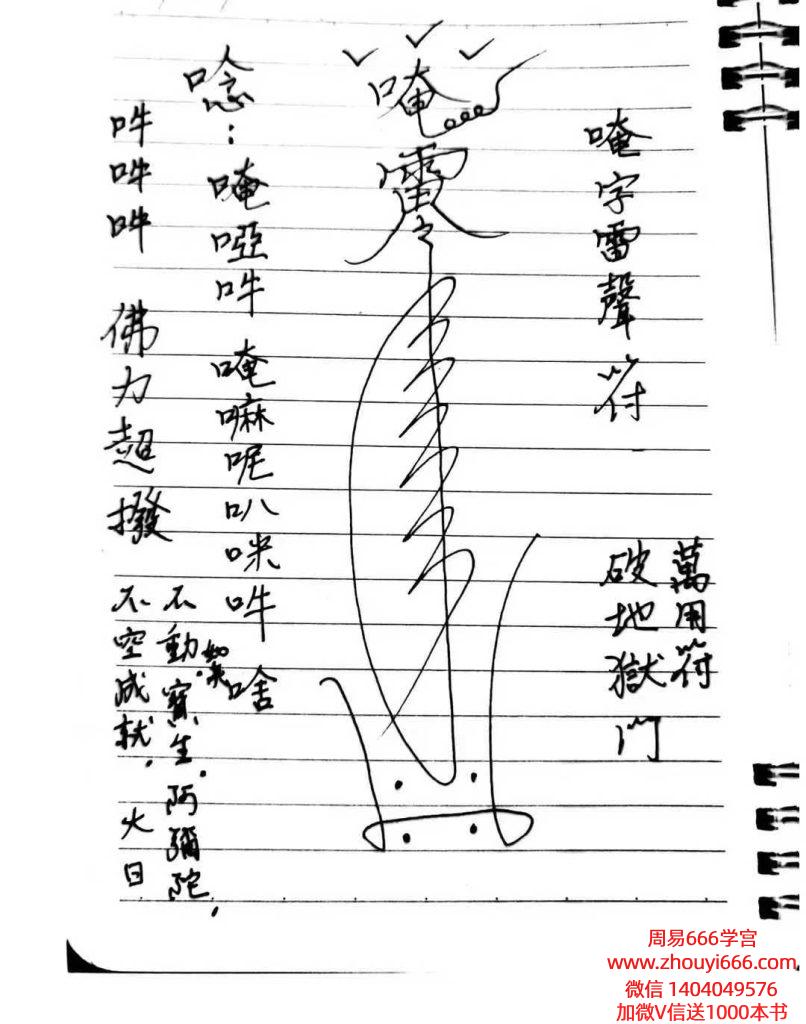 唵字雷聲符
萬用符
破地獄門
唵
唸：唵啞吽 唵嘛呢叭咪吽 啥
吽吽吽 佛力超撥
不動如來.寶生.阿彌陀,
不空成就. 火日
周易666学宫
www.zhouyi666.com
微信 1404049576
加微V信送1000本书